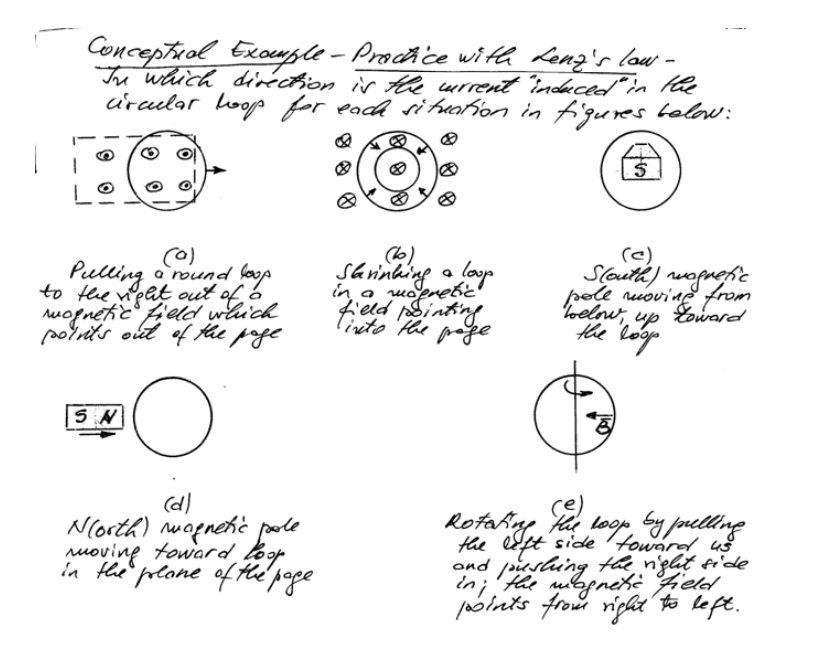 Conceptual Example – Practice with Lenz's law –
In which direction is the current "induced" in the
circular loop for each situation in figures below:
S
(a)
Pulling a round loop
to the right out of a
magnetic field which
points out of the page
(b)
Shrinking a loop
in a magnetic
field pointing
into the page
(c)
S(outh) magnetic
pole moving from
below, up toward
the loop
S N
B
(d)
N(orth) magnetic pole
moving toward loop
in the plane of the page
(e)
Rotating the loop by pulling
the left side toward us
and pushing the right side
in; the magnetic field
points from right to left.